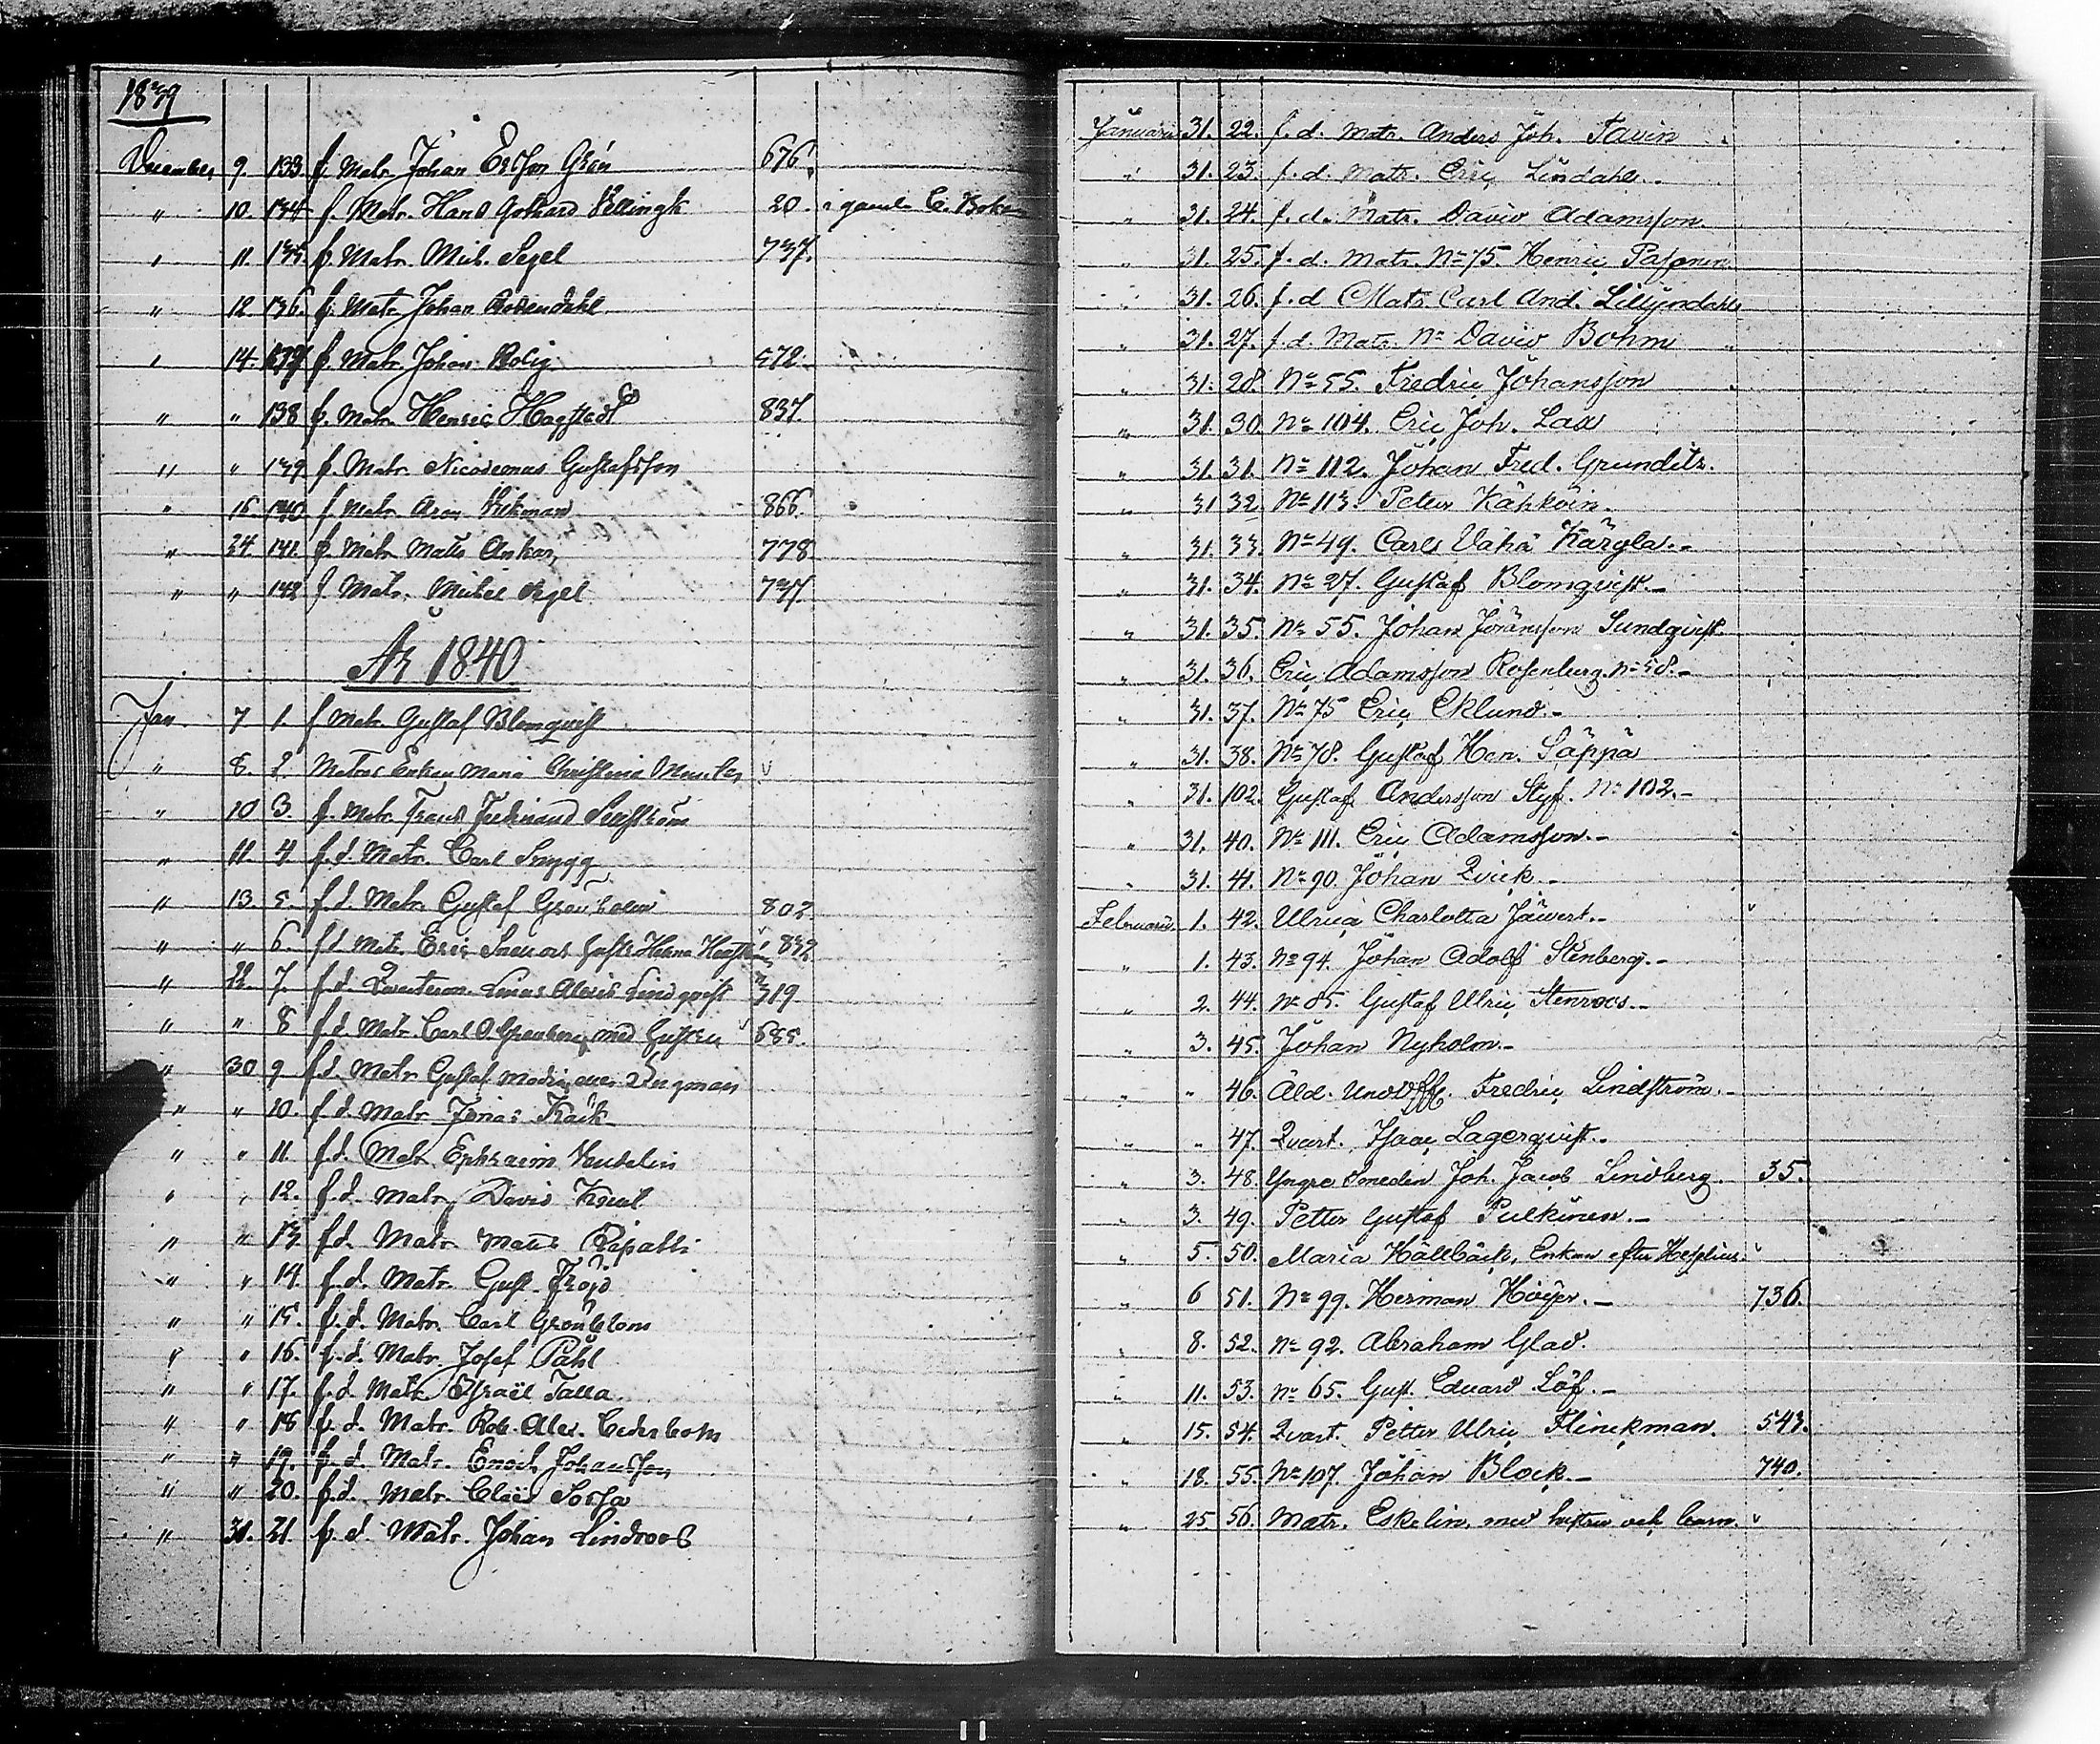 1839
December 9. 133. f. Matr. Johan Ersson Grén 676.
" 10. 134 f. Matr. Hans Gothard Vellingk 20. i gamla C. Boken
" 11. 135. f. Matr. Mich. Segel 737.
" 12. 136. f. Matr. Johan Rosendahl
" 14. 137 f. Matr. Johan Rolig 572.
" " 138 f. Matr. Henric Hagstedt 837.
" " 139 f. Matr. Nicodemus Gustafsson
" 16. 140 f. Matr. Aron Vikman 866.
" 24. 141. f. Matr. Matts Ankar 778
" " 142 f. Matr. Mickel Segel 737.
År 1840
Jan 7 1. f. Matr. Gustaf Blomqvist
" 8. 2. Matros Enkan Maria Christina v
" 10 3. f. Matr. Frans Ferdinand
" 11. 4 f.d. Matr. Carl Snygg
" 13. 5. f.d. Matr. Gustaf Granholm 802
" " 6. f.d. Matr. Eric hustr. Helena v 832
" 22. 7. f.d. Linus Alexis Lindqvist 319
" " 8 f.d. Matr. Carl O. Granberg med hustru v 685.
" 30 9 f.d. Matr. Gustaf Bergman
" " 10. f.d. Matr. Jonas Kask
" " 11. f.d. Matr. Ephraim Vendelin
" " 12. f.d. Matr. David
" " 13 f.d. Matr. Matts Ripatti
" " 14 f.d. Matr. Gust. Fröjd
" " 15. f.d. Matr. Carl Grönblom
" " 16. f.d. Matr. Josef Påhl
" " 17. f.d. Matr. Israël Talla
" " 18 f.d. Matr. Rob. Alex. Cederbom
" " 19. f.d. Matr. Enoch Johansson
" " 20. f.d. Matr. Claës Sorsa
" 31. 21. f.d. Matr. Johan Lindroos
Januarii 31. 22. f.d. Matr. Anders Joh. Tavin
" 31. 23. f.d. Matr. Eric Lindahl.
" 31. 24. f.d. Matr. David Adamsson.
" 31. 25. f.d. Matr. No 75. Henric Pasonen.
" 31. 26. f.d. Matr. Carl And. Liljendahl
" 31. 27. f.d. Matr. No David Bohm
" 31. 28. No 55. Fredric Johansson
" 31. 30. No 104. Eric Joh. Lax
" 31. 31. No 112. Johan Fred. Grunditz.
" 31 32. No 113. Petter Kähköin.
" 31. 33. No 49. Carl Vähä Kärylä.
" 31. 34. No 27. Gustaf Blomqvist.
" 31. 35. No 55. Johan Jöransson Sundqvist.
" 31. 36. Eric Adamsson Rosenberg. No 58.
" 31. 37. No 75 Eric Eklund.
" 31. 38. No 78. Gustaf Hen. Säppä
" 31. 102. Gustaf Andersson Styf. No 102.
" 31. 40. No 111. Eric Adamsson.
" 31. 41. No 90. Johan Qvick
Februarii 1. 42. Ulrica Charlotta Jäwert. v
" 1. 43. No 94. Johan Adolf Stenberg.
" 2. 44. No 85. Gustaf Ulric Stenroos.
" 3. 45. Johan Nyholm.
" " 46. Äld. Und.Off. Fredric Lindström.
" " 47. Qvart. Isaac Lagerqvist.
" 3. 48. Yngre Smeden Joh. Jacob Lindberg. 35.
" 3. 49. Petter Gustaf Pulkinen.
" 5. 50. Maria Hällbäck, Enkan efter v
" 6 51. No 99. Herman Höijer. 736.
" 8. 52. No 92. Abraham Glad.
" 11. 53. No 65. Gust. Eduard Löf.
" 15. 54. Qvart. Petter Ulric Flinckman. 543.
" 18. 55. No 107. Johan Block. 740.
" 25 56. Matr. Eskelin, med hustru och barn. v